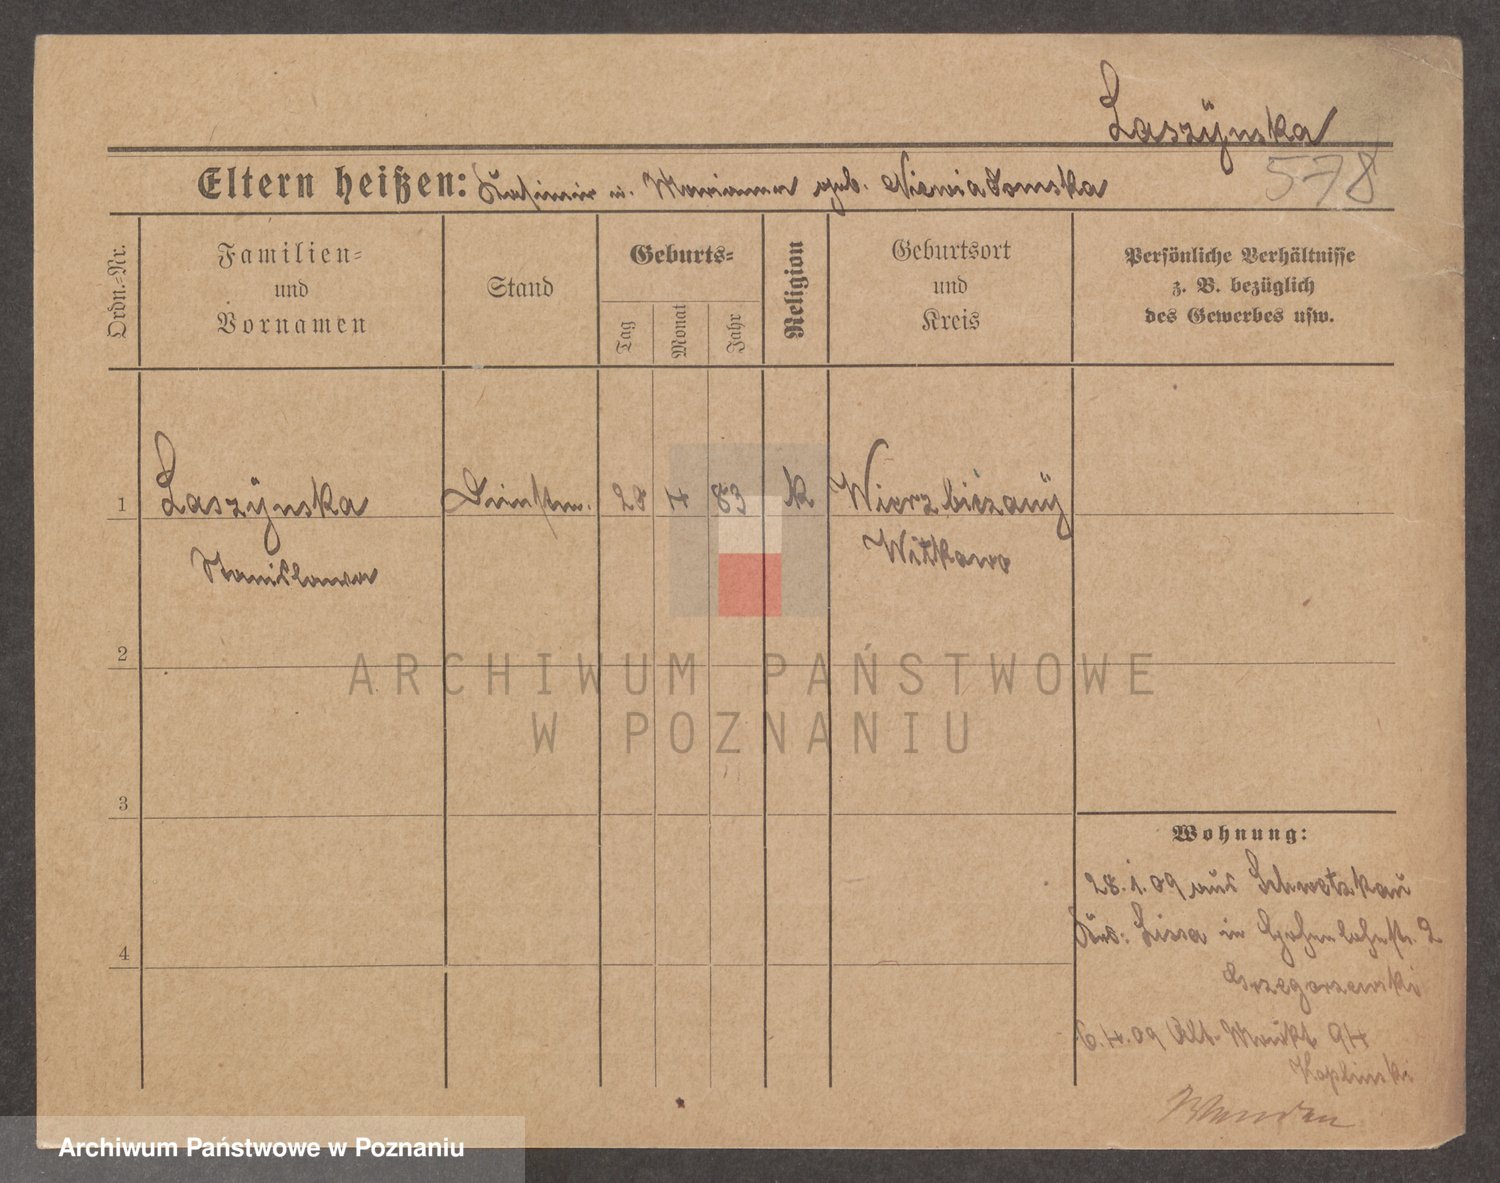 Laszÿnska
578
Eltern heißen: Kasimir u. Marianna geb. Niewiadomska
Ordn.=Nr.
Familien=
und
Vornamen
Stand
Geburts=
Tag
Monat
Jahr
Religion
Geburtsort
und
Kreis
Persönliche Verhältnisse
z. B. bezüglich
des Gewerbes usw.
1 Laszÿnska Dienstm. 28 4 83 k Wierzbiczanÿ
Stanislawa Witkowo
2
ARCHIWUM PAŃSTWOWE
W POZNANIU
3
4
Wohnung:
28.1.09 aus Schwetzkau
Krs: Lissa in Hohenlohestr. 2
Grzegorzewski
6.4.09 Alt. Markt 94
Koplinski
Archiwum Państwowe w Poznaniu